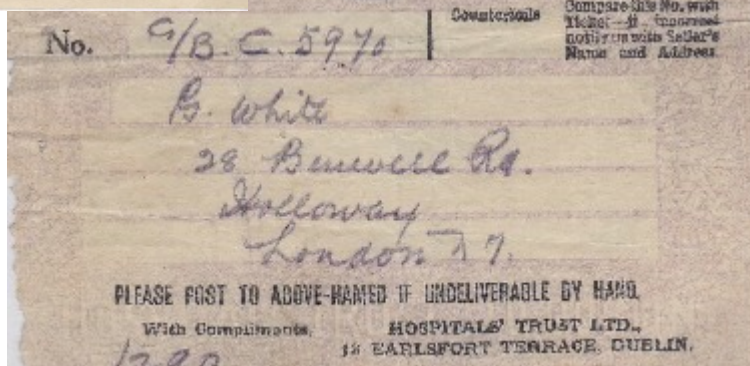 Counterfoils
Compare this No. with
Ticket—if incorrect
notify us with Seller's
Name and Address
No. G/B.C. 5970
G. White
28 Benwell Rd.
Holloway
London N7.
PLEASE POST TO ABOVE-NAMED IF UNDELIVERABLE BY HAND.
With Compliments,
HOSPITALS' TRUST LTD.,
13 EARLSFORT TERRACE, DUBLIN.